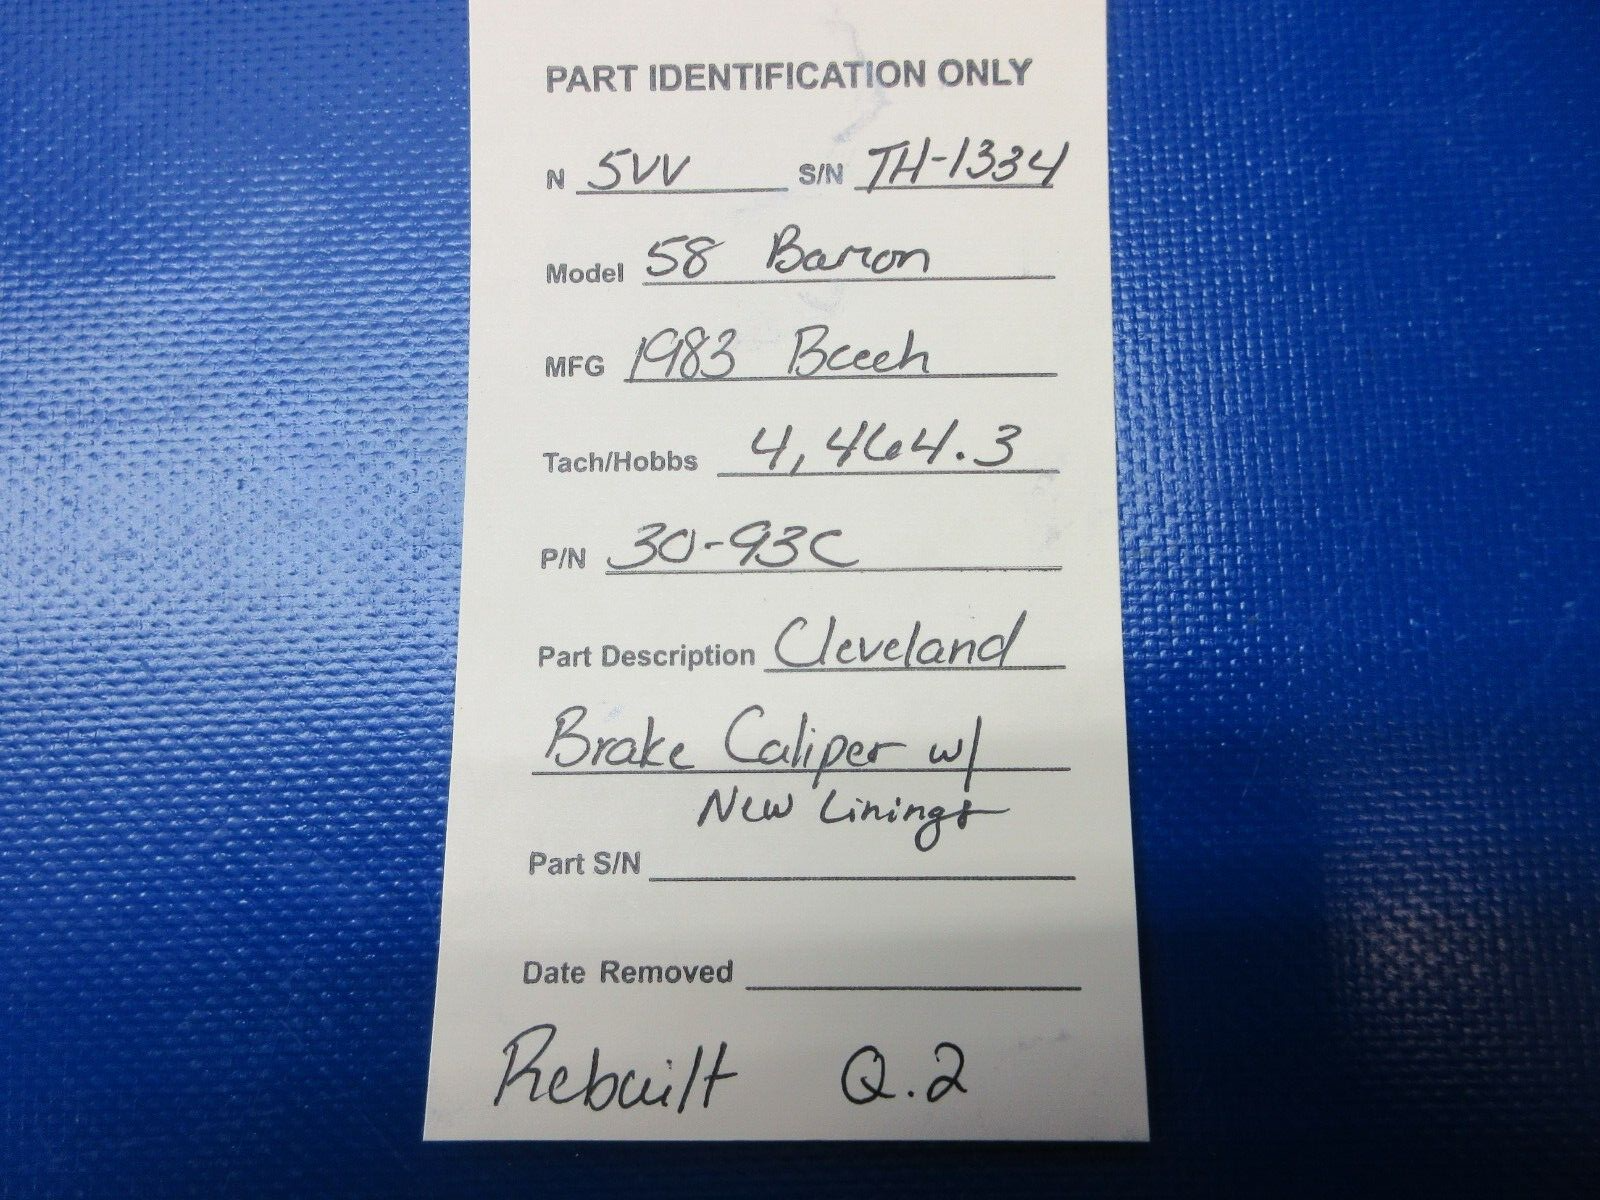 PART IDENTIFICATION ONLY
N 5VV S/N TH-1334
Model 58 Baron
MFG 1983 Beech
Tach/Hobbs 4,464.3
P/N 30-93C
Part Description Cleveland
Brake Caliper w/
New Linings
Part S/N
Date Removed
Rebuilt Q.2